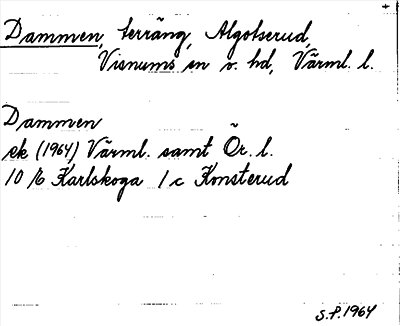 Dammen, terräng, Algotserud,
Visnums sn o. hd, Värml. l.
Dammen
ek (1964) Värml. samt Ör. l.
10 E Karlskoga 1 c Konsterud
S.P. 1964